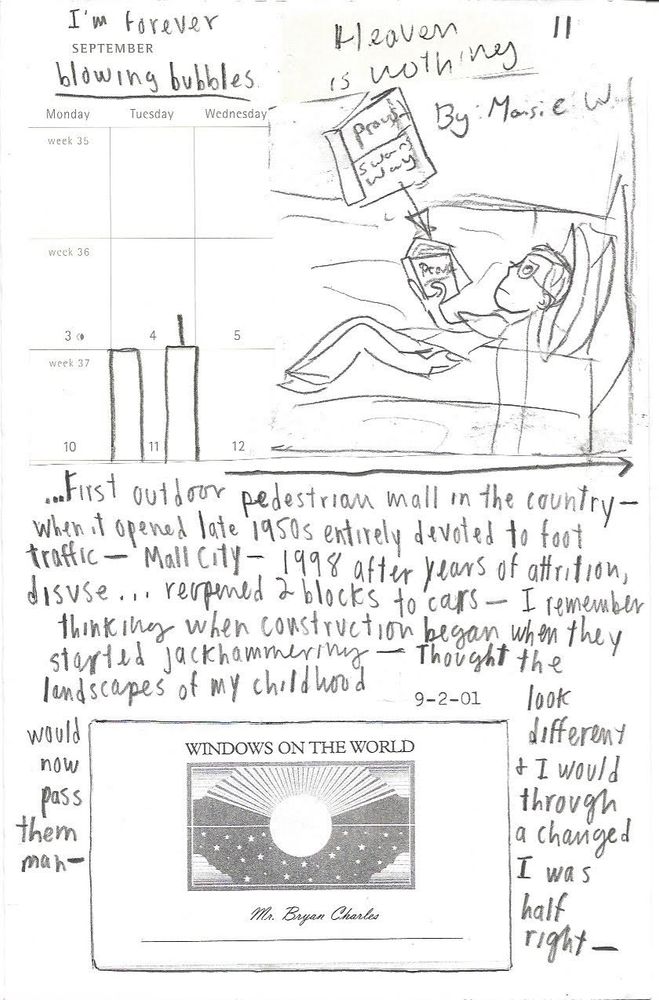 I'm forever
SEPTEMBER
blowing bubbles
Monday Tuesday Wednesday
week 35
week 36
3 4 5
week 37
10 11 12
Heaven
is nothing
11
By: Maisie W.
Proust
Swans
Way
Proust
...First outdoor pedestrian mall in the country—
when it opened late 1950s entirely devoted to foot
traffic — Mall City — 1998 after years of attrition,
disuse... reopened 2 blocks to cars — I remember
thinking when construction began when they
started jackhammering — Thought the
landscapes of my childhood
9-2-01
would
now
pass
them
man—
look
different
& I would
through
a changed
I was
half
right —
WINDOWS ON THE WORLD
Mr. Bryan Charles